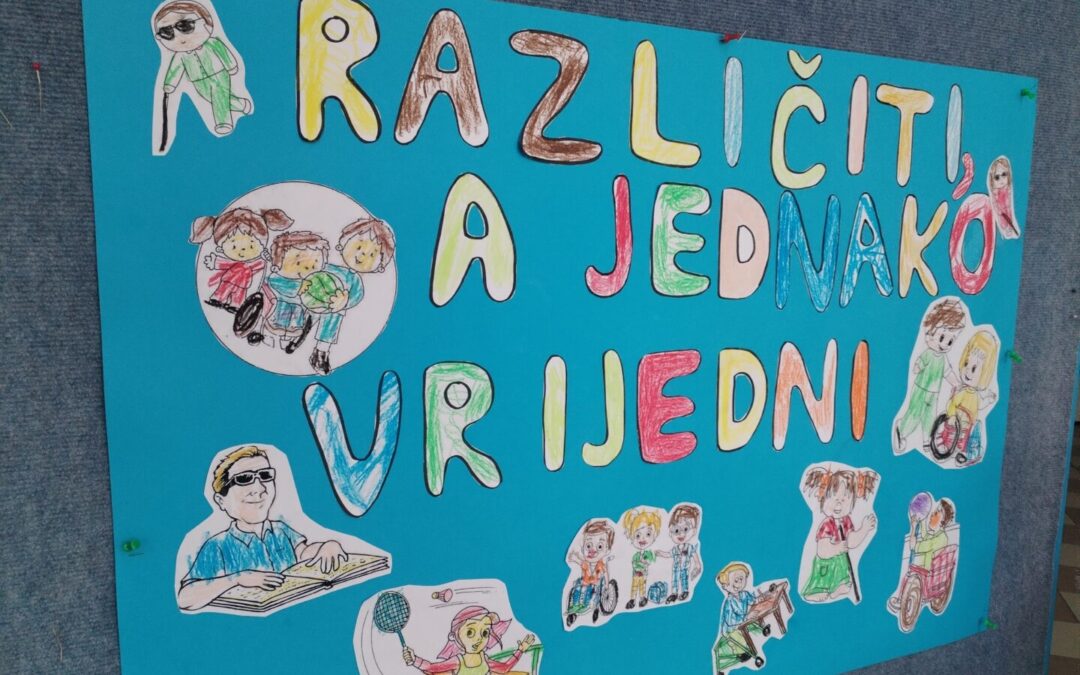 RAZLIČITI,
A JEDNAKO
VRIJEDNI